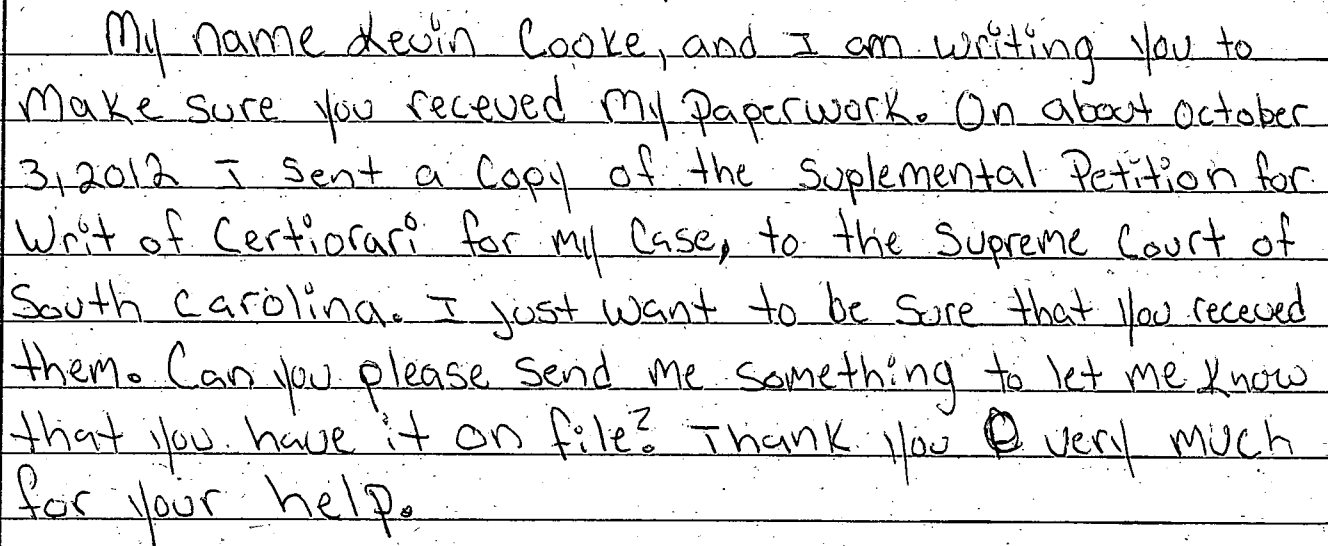 My name Kevin Cooke, and I am writing you to
make sure you receved my paperwork. On about October
3, 2012 I sent a copy of the Suplemental Petition for
Writ of Certiorari for my case, to the Supreme Court of
South Carolina. I just want to be sure that you receved
them. Can you please send me something to let me know
that you have it on file? Thank you very much
for your help.